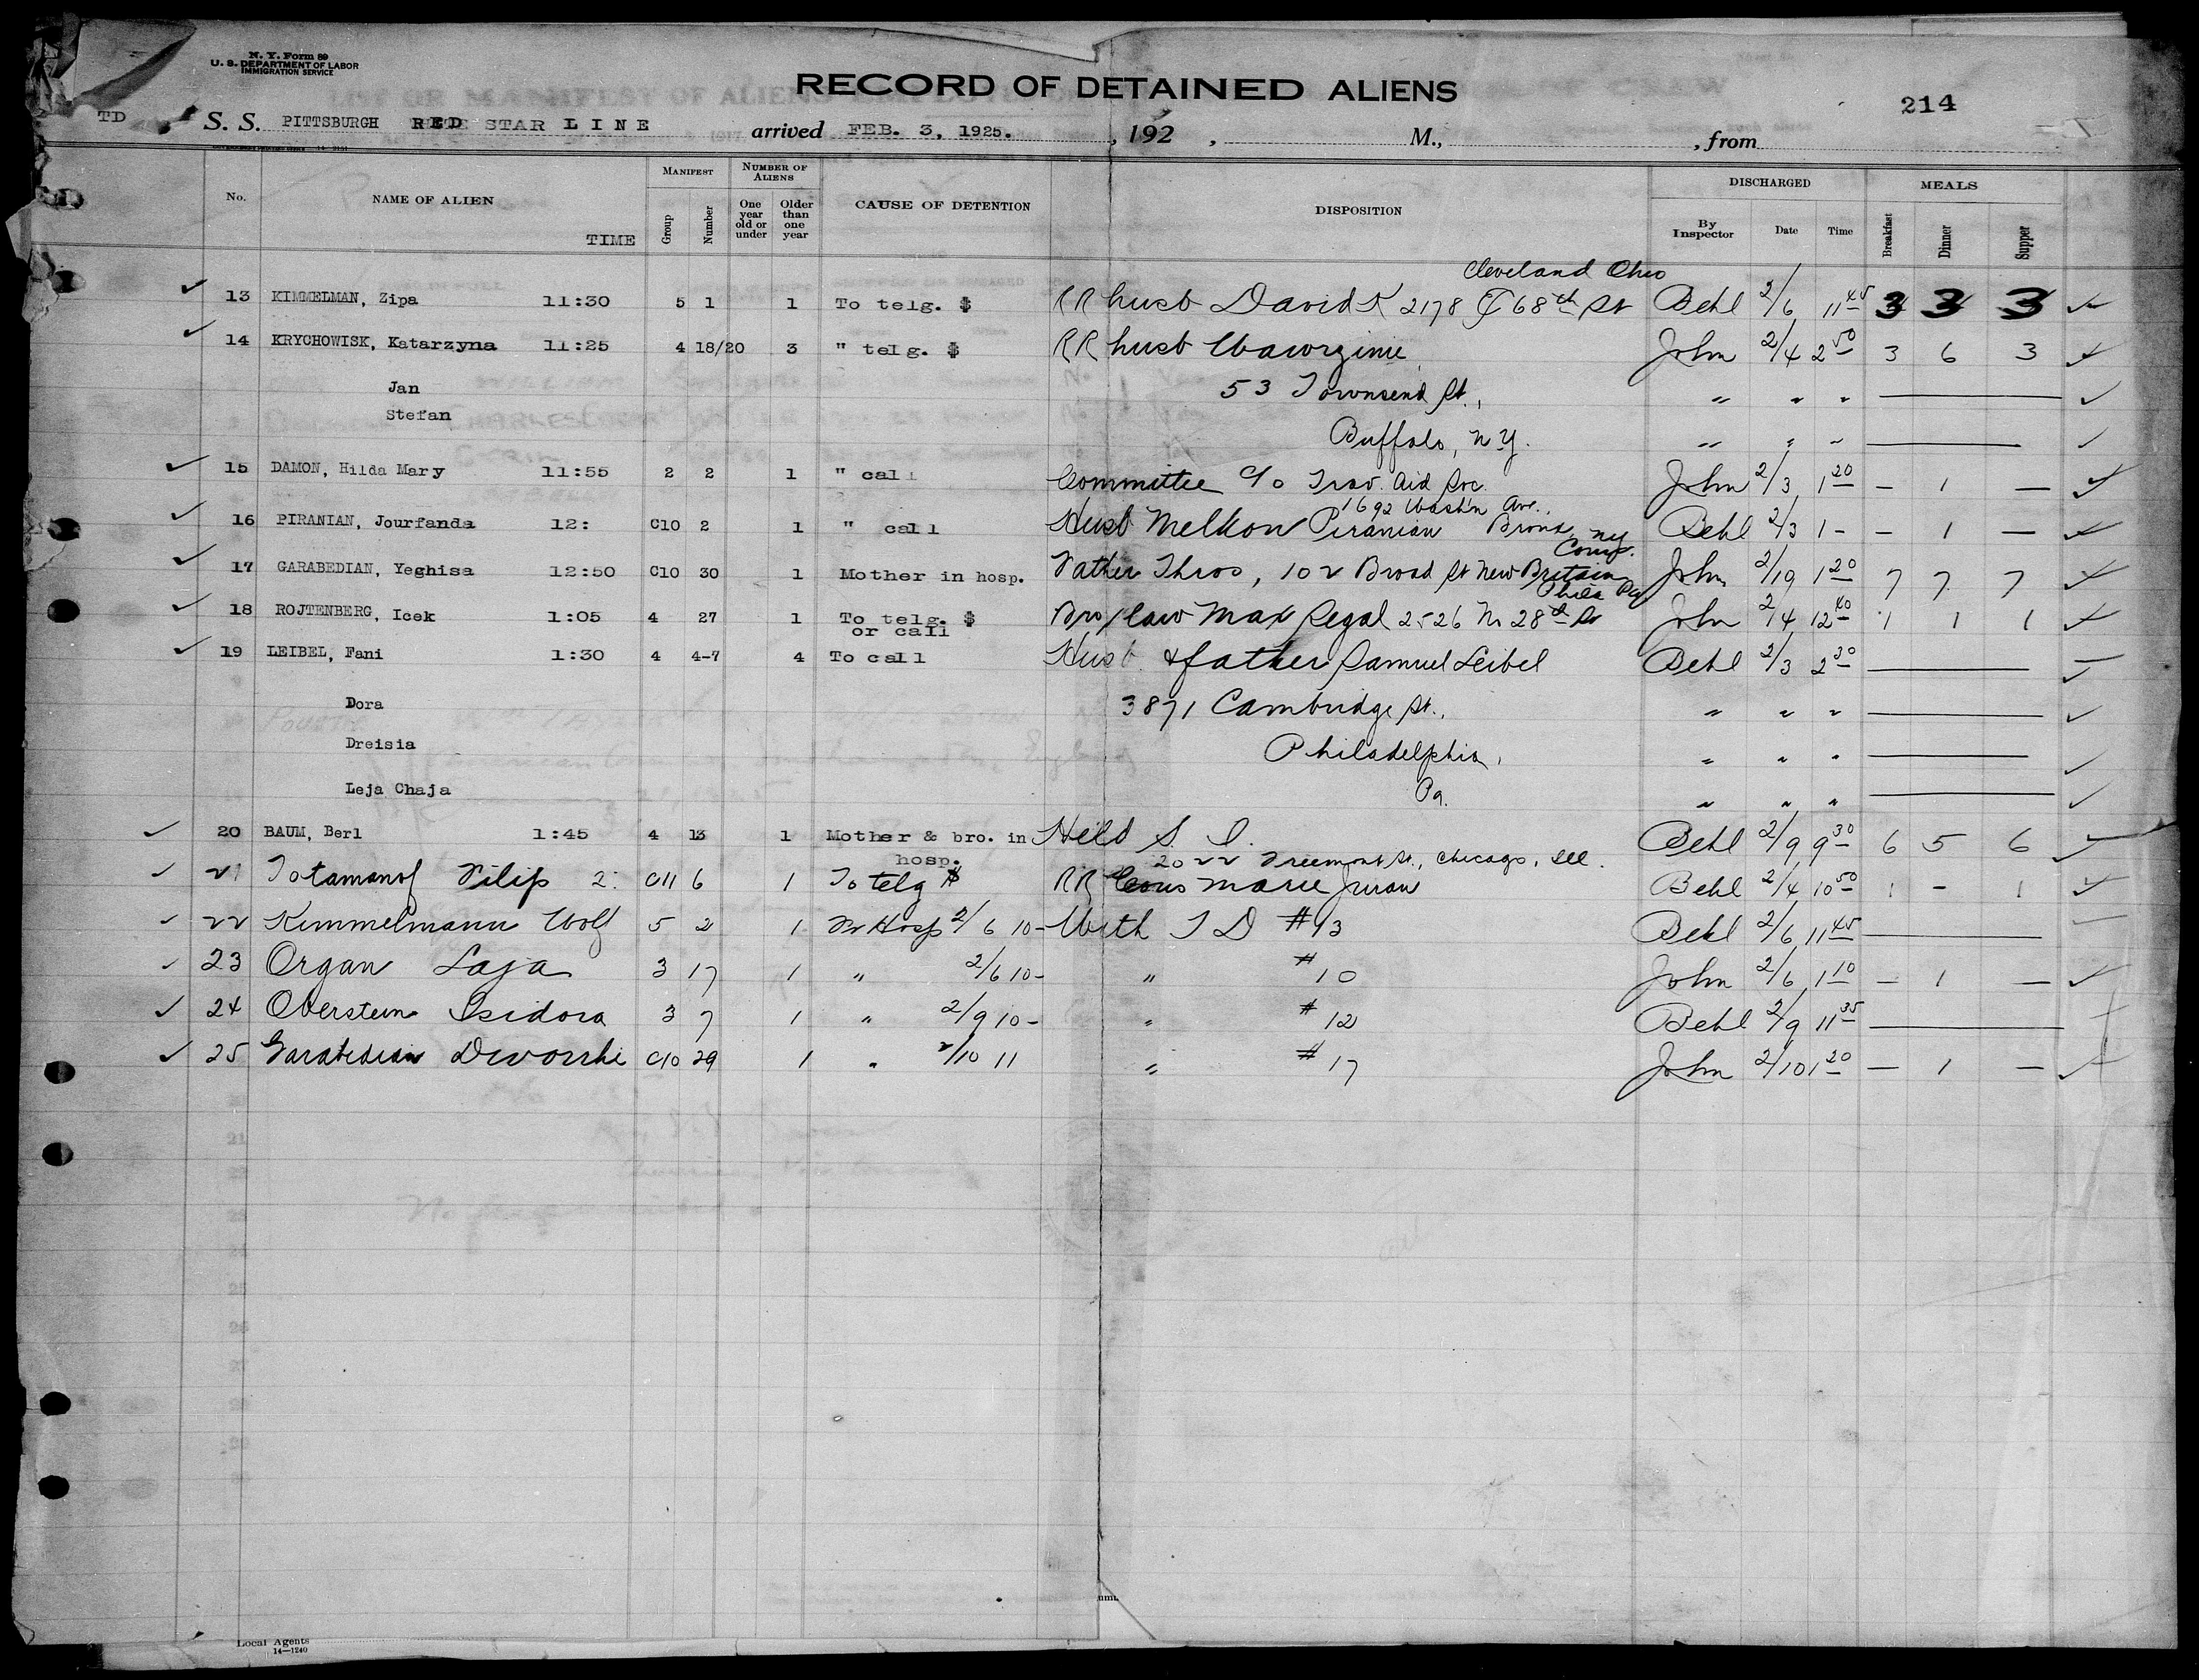 N. Y. Form 89
U. S. DEPARTMENT OF LABOR
IMMIGRATION SERVICE
RECORD OF DETAINED ALIENS
214
TD
S. S. PITTSBURGH RED STAR LINE arrived FEB. 3, 1925. , 192 , M., , from
No. NAME OF ALIEN TIME MANIFEST Group Number NUMBER OF ALIENS One year old or under Older than one year CAUSE OF DETENTION DISPOSITION DISCHARGED By Inspector Date Time MEALS Breakfast Dinner Supper
Cleveland Ohio
13 KIMMELMAN, Zipa 11:30 5 1 1 To telg. $ RR husb David K 2178 E 68th St Behl 2/6 11 45 3 3 3
14 KRYCHOWISK, Katarzyna 11:25 4 18/20 3 " telg. $ RR husb Wawrzinie John 2/4 2 50 3 6 3
Jan 53 Townsend St., " " "
Stefan
Buffalo, N.Y. " " "
15 DAMON, Hilda Mary 11:55 2 2 1 " call Committee c/o Trav. Aid Soc. John 2/3 1 20 – 1 –
1692 Wash'n Ave.,
16 PIRANIAN, Jourfanda 12: C10 2 1 " call Husb Melkon Piranian Bronx NY Behl 2/3 1 – – 1 –
Conn.
17 GARABEDIAN, Yeghisa 12:50 C10 30 1 Mother in hosp. Father Thros, 102 Broad St New Britain John 2/10 1 20 7 7 7
Phila Pa
18 ROJTENBERG, Icek 1:05 4 27 1 To telg. $ Bro/law Max Segal 2526 N. 28th St John 2/4 12 40 1 1 1
or call
19 LEIBEL, Fani 1:30 4 4-7 4 To call Husb. & father Samuel Leibel Behl 2/3 2 30
Dora 3871 Cambridge St., " " "
Dreisia Philadelphia, " " "
Leja Chaja Pa. " " "
20 BAUM, Berl 1:45 4 13 1 Mother & bro. in Held S. I. Behl 2/9 9 30 6 5 6
hosp. 2022 Freemont St., Chicago, Ill.
21 Totamanof Filip 2: C11 6 1 To telg $ RR Cous Marie Behl 2/4 10 50 1 – 1
22 Kimmelmann Wolf 5 2 1 Fr Hosp 2/6 10– With T D #13 Behl 2/6 11 45
23 Organ Laja 3 17 1 " 2/6 10– " #10 John 2/6 1 10 – 1 –
24 Oberstein Isidora 3 7 1 " 2/9 10– " #12 Behl 2/9 11 35
25 Garabedian C10 29 1 " 2/10 11 " #17 John 2/10 1 20 – 1 –
Local Agents
14—1240